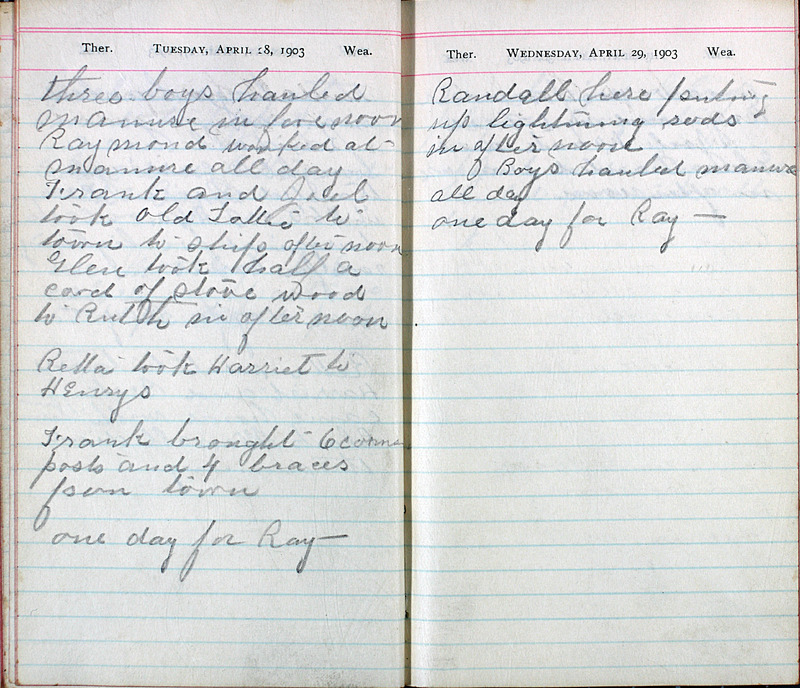 Ther. TUESDAY, APRIL 28, 1903 Wea.
three boys hauled
manure in fore noon
Raymond worked at
manure all day
Frank and
took old Tattie to
town to ship after noon
Glen took half a
cord of stove wood
to Ruth in after noon
Retta took Harriet to
Henrys
Frank brought 6 corner
posts and 4 braces
from town
one day for Ray —
Ther. WEDNESDAY, APRIL 29, 1903 Wea.
Randall here puting
up lightning rods
in after noon
Boys hauled manure
all day
one day for Ray —